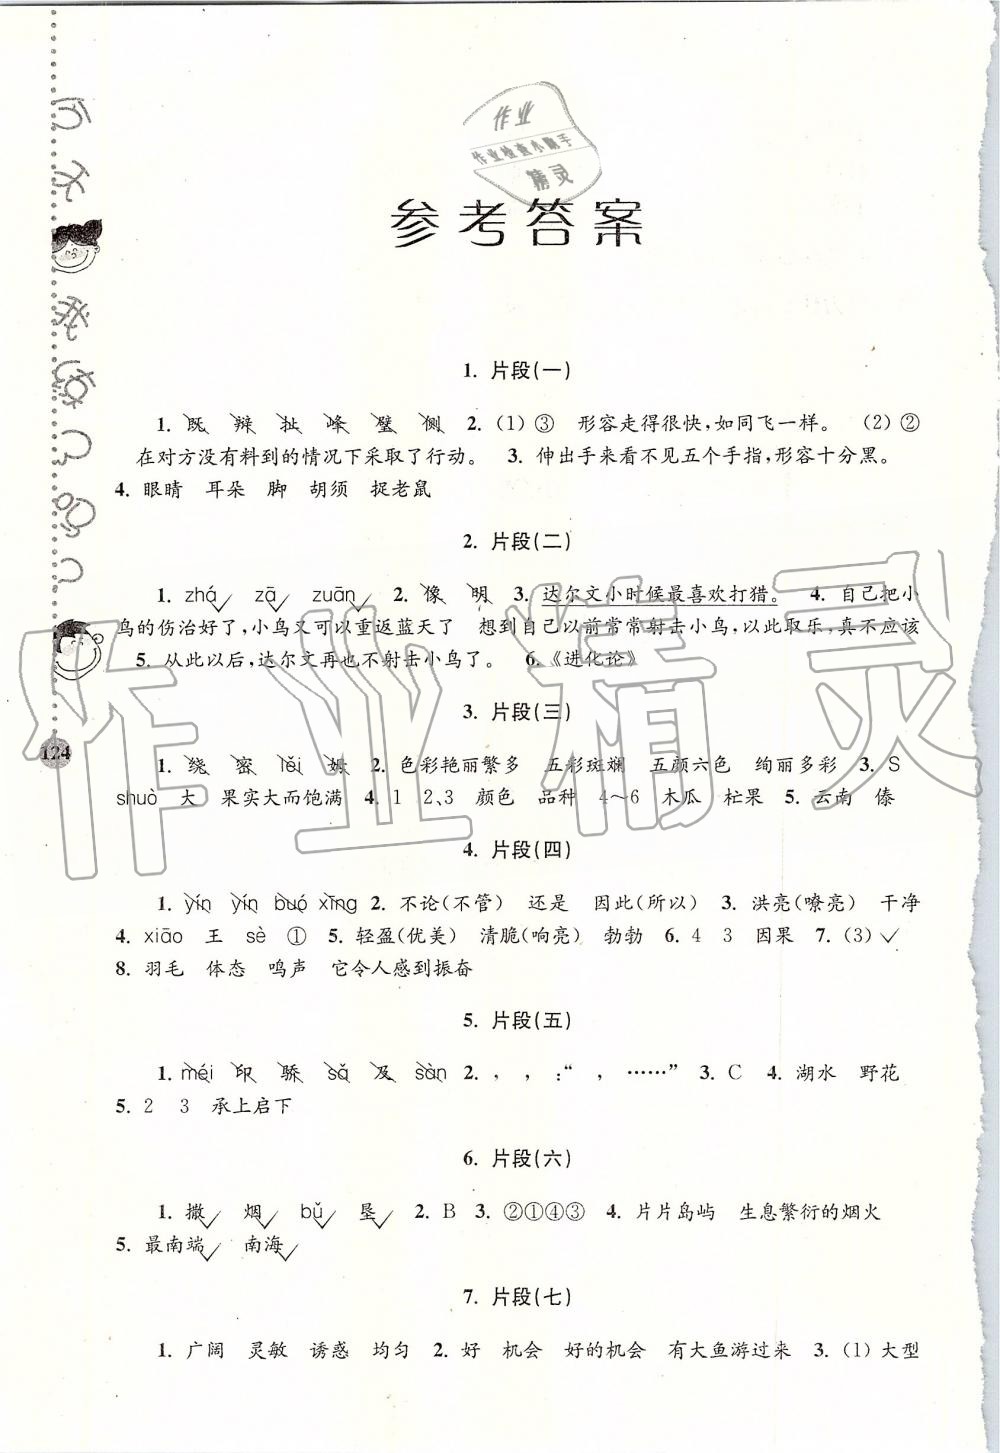 作业
作业检查小助手
精灵
参考答案
1. 片段(一)
1. 既 辩 扯 峰 璧 侧 2. (1) ③ 形容走得很快,如同飞一样。 (2) ②
在对方没有料到的情况下采取了行动。 3. 伸出手来看不见五个手指,形容十分黑。
4. 眼睛 耳朵 脚 胡须 捉老鼠
2. 片段(二)
1. zhá zā zuān 2. 像 明 3. 达尔文小时候最喜欢打猎。 4. 自己把小
鸟的伤治好了,小鸟又可以重返蓝天了 想到自己以前常常射击小鸟,以此取乐,真不应该
5. 从此以后,达尔文再也不射击小鸟了。 6.《进化论》
3. 片段(三)
1. 绕 密 lěi 姆 2. 色彩艳丽繁多 五彩斑斓 五颜六色 绚丽多彩 3. S
shuò 大 果实大而饱满 4. 1 2、3 颜色 品种 4～6 木瓜 杧果 5. 云南 傣
4. 片段(四)
1. yín yín buó xīng 2. 不论(不管) 还是 因此(所以) 3. 洪亮(嘹亮) 干净
4. xiāo 王 sè ① 5. 轻盈(优美) 清脆(响亮) 勃勃 6. 4 3 因果 7. (3)✓
8. 羽毛 体态 鸣声 它令人感到振奋
5. 片段(五)
1. méi 印 骄 sǎ 及 sàn 2. , , :“ , ……” 3. C 4. 湖水 野花
5. 2 3 承上启下
6. 片段(六)
1. 撒 烟 bǔ 垦 2. B 3. ②①④③ 4. 片片岛屿 生息繁衍的烟火
5. 最南端 南海
7. 片段(七)
1. 广阔 灵敏 诱惑 均匀 2. 好 机会 好的机会 有大鱼游过来 3. (1) 大型
124
作业精灵